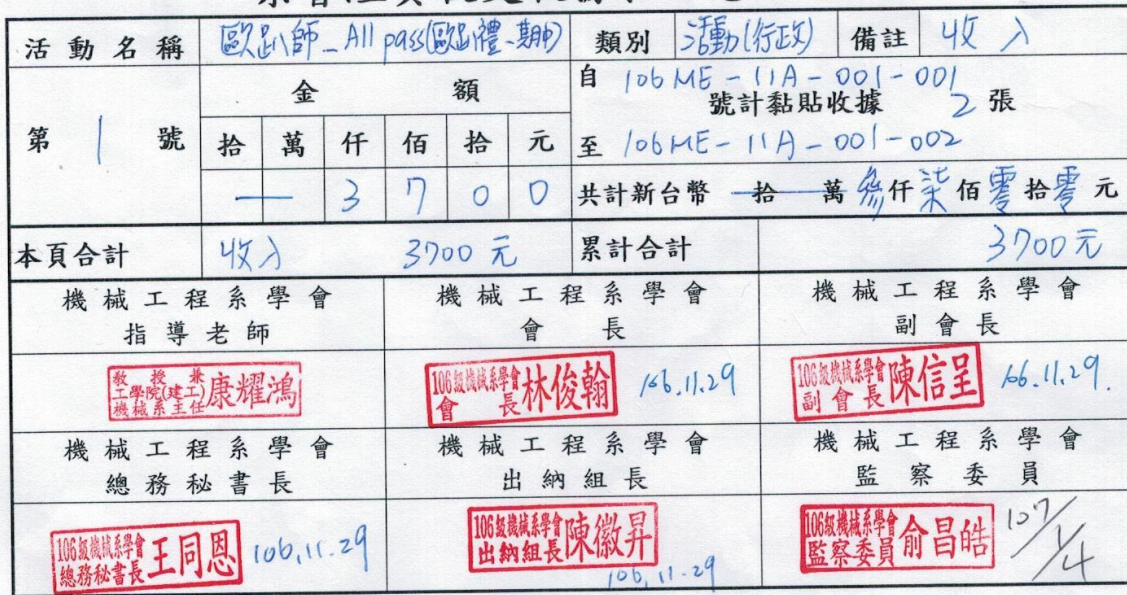 活動名稱 歐趴師_All pass(歐趴禮、期中) 類別 活動(行政) 備註 收入
第 1 號
金額
拾 萬 仟 佰 拾 元
— 3 7 0 0
自 106ME-11A-001-001
號計黏貼收據 2 張
至 106ME-11A-001-002
共計新台幣 拾 萬 參仟柒佰零拾零元
本頁合計 收入 3700元 累計合計 3700元
機械工程系學會 機械工程系學會 機械工程系學會
指導老師 會長 副會長
教授兼
工學院(建工)
機械系主任 康耀鴻
106級機械系學會
會長 林俊翰 106.11.29
106級機械系學會
副會長 陳信呈 106.11.29.
機械工程系學會 機械工程系學會 機械工程系學會
總務秘書長 出納組長 監察委員
106級機械系學會
總務秘書長 王同恩 106.11.29
106級機械系學會
出納組長 陳徽昇
106.11.29
106級機械系學會
監察委員 俞昌皓 107/1/4